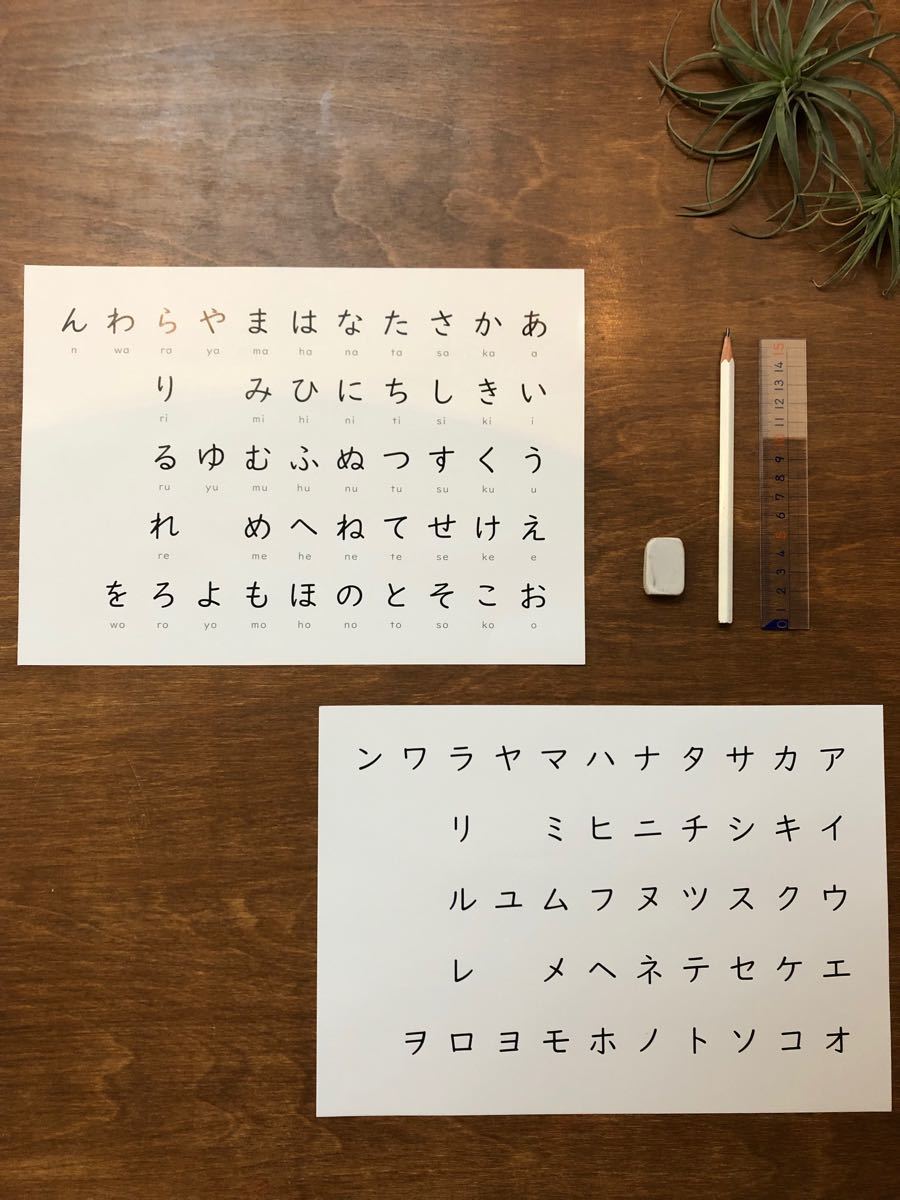 ん わ ら や ま は な た さ か あ
n wa ra ya ma ha na ta sa ka a
り み ひ に ち し き い
ri mi hi ni ti si ki i
る ゆ む ふ ぬ つ す く う
ru yu mu hu nu tu su ku u
れ め へ ね て せ け え
re me he ne te se ke e
を ろ よ も ほ の と そ こ お
wo ro yo mo ho no to so ko o
0 1 2 3 4 5 6 7 8 9 10 11 12 13 14 15
ン ワ ラ ヤ マ ハ ナ タ サ カ ア
リ ミ ヒ ニ チ シ キ イ
ル ユ ム フ ヌ ツ ス ク ウ
レ メ ヘ ネ テ セ ケ エ
ヲ ロ ヨ モ ホ ノ ト ソ コ オ